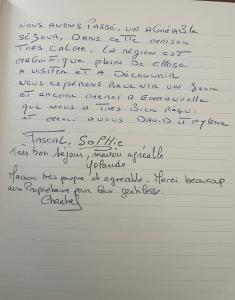 NOUS AVONS PASSÉ, UN AGRÉABLE
SÉJOUR, DANS CETTE MAISON
TRES CALME, LA RÉGION EST
MAGNIFIQUE PLEIN DE CHOSE
A VISITER ET A DÉCOUVRIR
NOUS ESPÉRONS REVENIR UN JOUR
ET ENCORE MERCI A EMMANUELLE
QUI NOUS A TRES BIEN REÇU
ET MERCI A VOUS DAVID ET MYLENE
PASCAL, SOPHIE
très bon séjour, maison agréable
Yolande
Maison très propre et agréable. Merci beaucoup
aux Propriétaires pour leur gentillesse.
Chantal